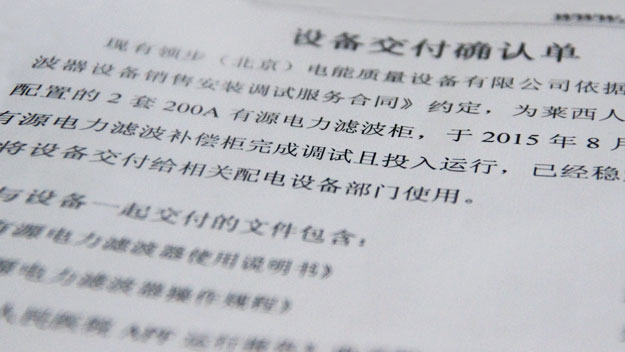 www.
设备交付确认单
现有领步（北京）电能质量设备有限公司依据
波器设备销售安装调试服务合同》约定，为莱西人
配置的 2 套 200A 有源电力滤波柜，于 2015 年 8 月
有源电力滤波补偿柜完成调试且投入运行，已经稳
将设备交付给相关配电设备部门使用。
与设备一起交付的文件包含：
有源电力滤波器使用说明书》
源电力滤波器操作规程》
人民医院 APF 运行报告》